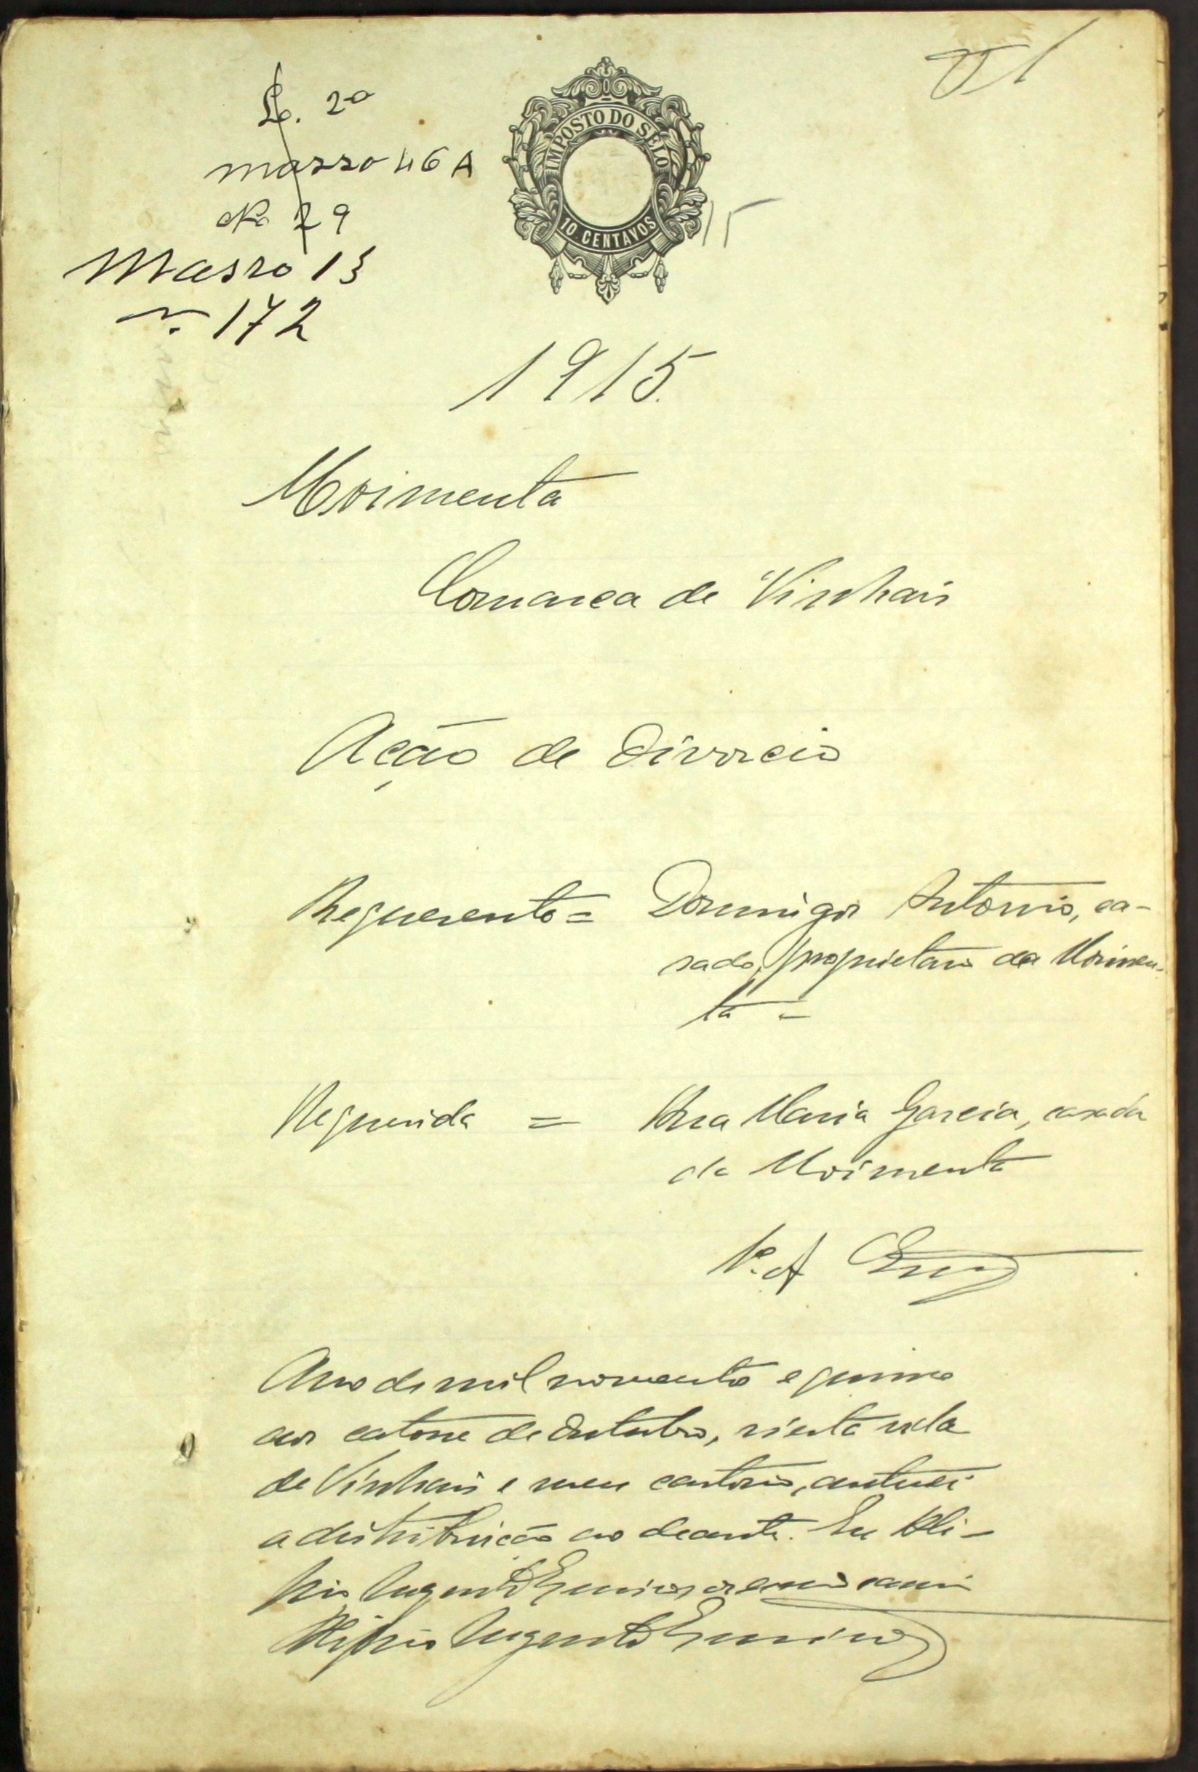 L. 2º
masso 46 A
Nº 29
Masso 13
n. 172
IMPOSTO DO SELO
10 CENTAVOS
15
1915.
Moimenta
Comarca de Vinhais
Acção de Divorcio
Requerente = Domingos Antonio, ca-
sado, proprietario da Moimen-
ta =
Requerida = Ana Maria Garcia, casada
da Moimenta
Ano de mil novecentos e quinze
aos catorze de Outubro, n'esta vila
de Vinhais e meu cartorio, autuei
a distribuição ao deante. Eu Ali-
pio Augusto
Alipio Augusto